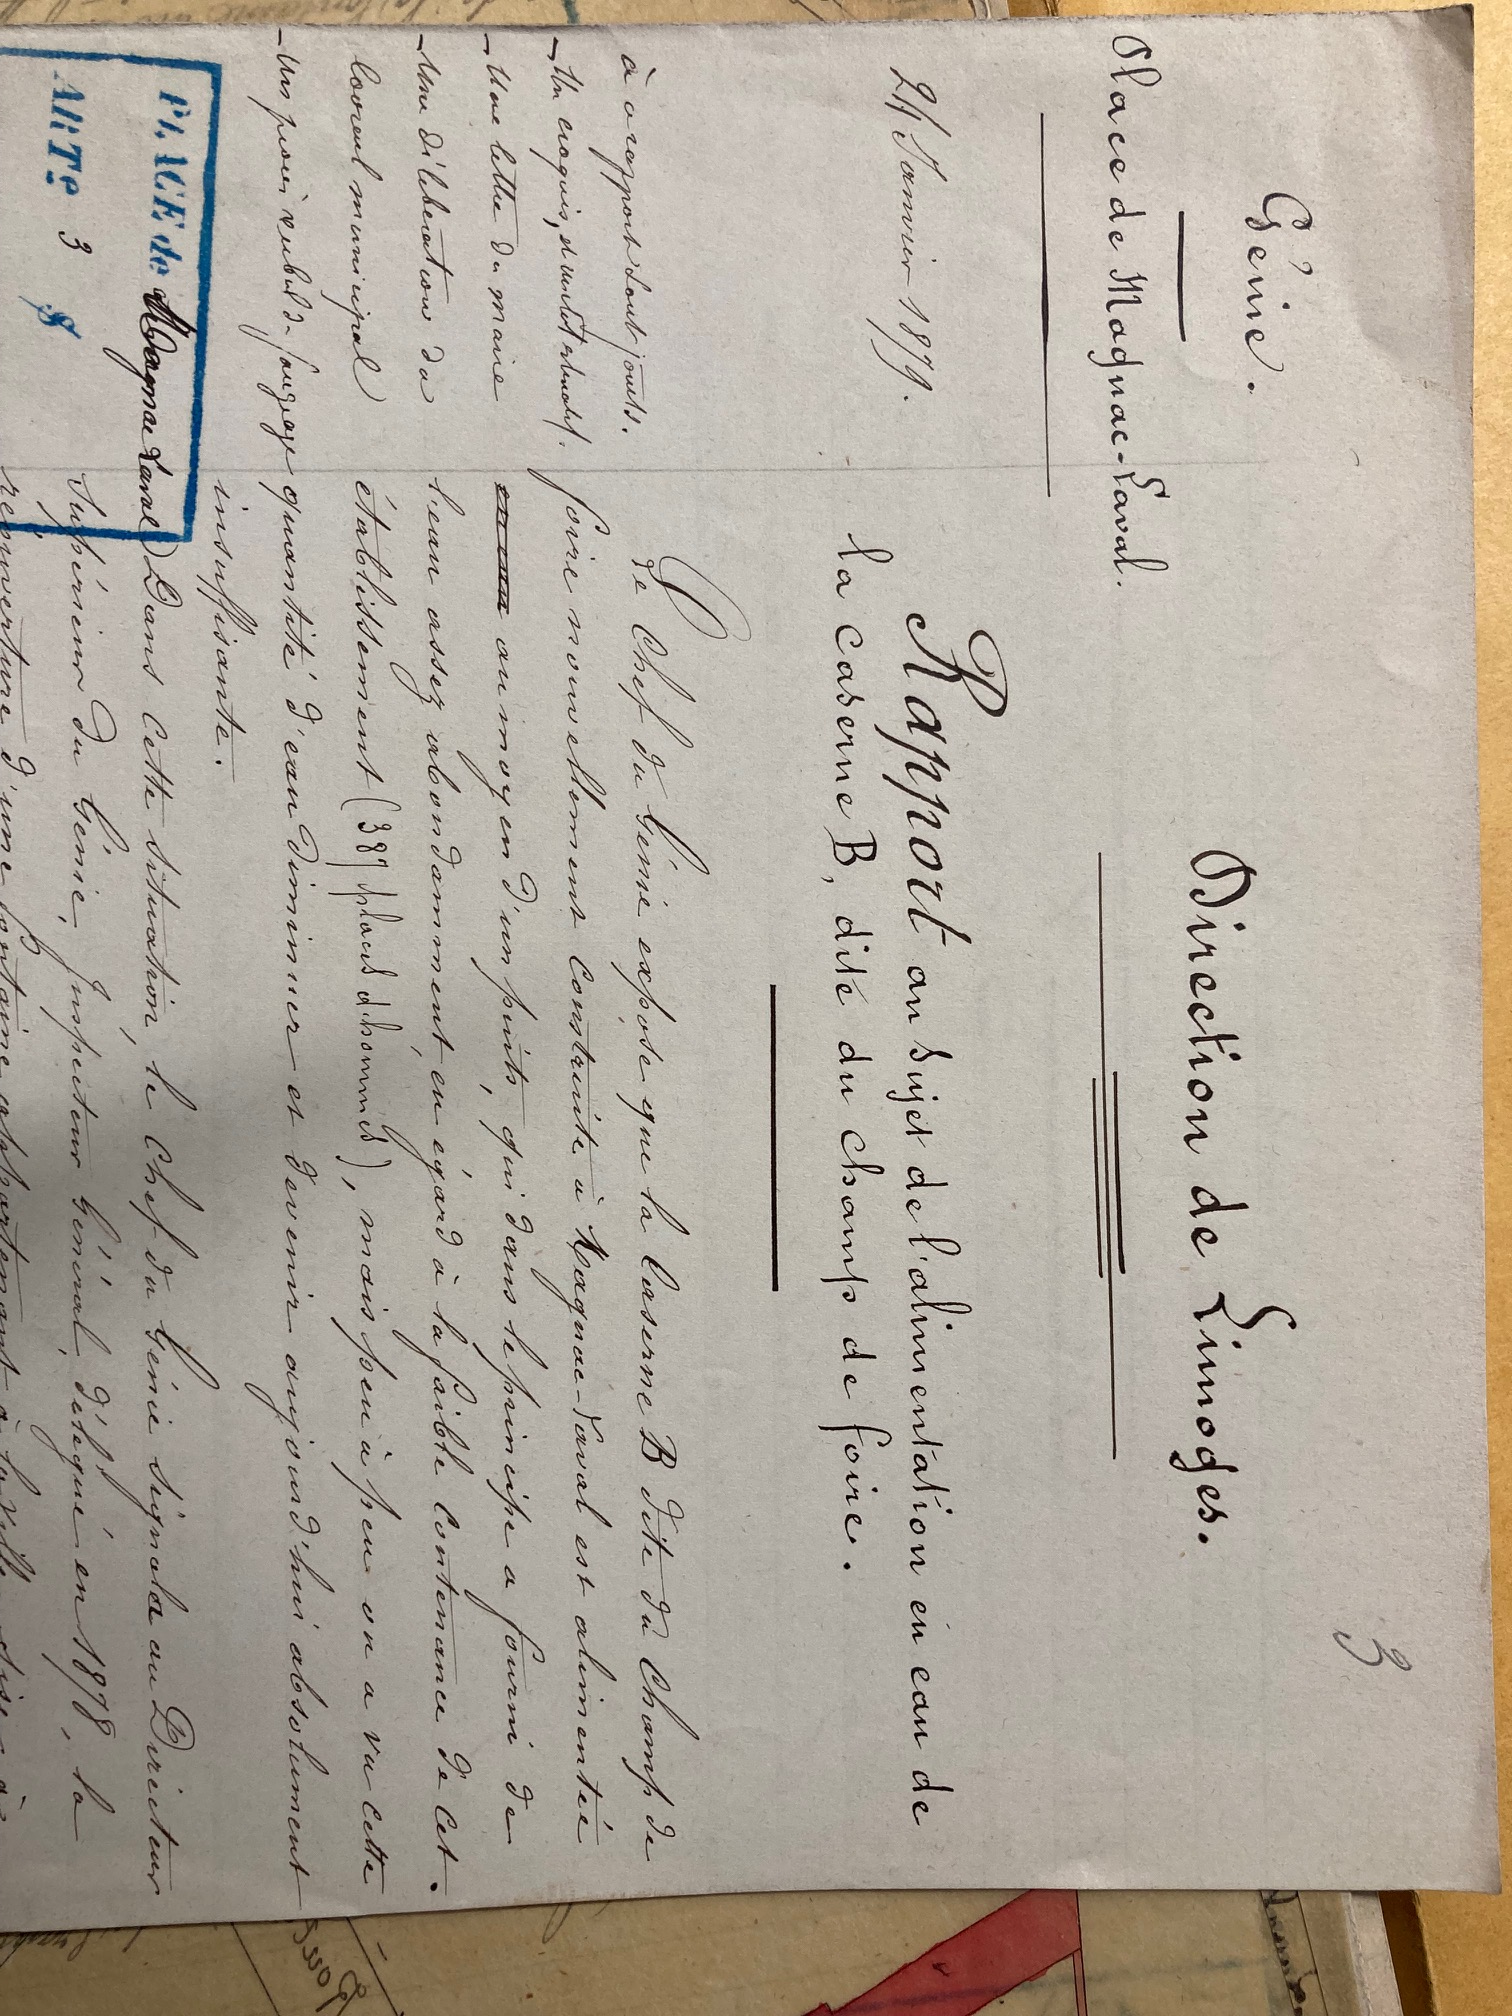 3
Génie.
Direction de Limoges.
Place de Magnac-Laval.
24 Janvier 1879.
Rapport au sujet de l'alimentation en eau de
la Caserne B, dite du champ de foire.
à ce rapport sont joints.
- Un croquis,
- Une lettre du maire
- Une délibération du
Conseil municipal
- Un procès verbal de jaugeage
Le Chef du Génie expose que la Caserne B dite du Champ de
foire nouvellement construite à Magnac-Laval est alimentée
au moyen d'un puits, qui dans le principe a fourni de
l'eau assez abondamment, eu égard à la faible contenance de cet
établissement (387 places d'hommes), mais peu à peu on a vu cette
quantité d'eau diminuer et devenir aujourd'hui absolument
insuffisante.
Dans cette situation, le Chef du Génie signala au Directeur
Supérieur du Génie, Inspecteur Général, délégué en 1878, la
réouverture d'une fontaine appartenant à la ville
PLACE de Magnac Laval
ARTe 3 §